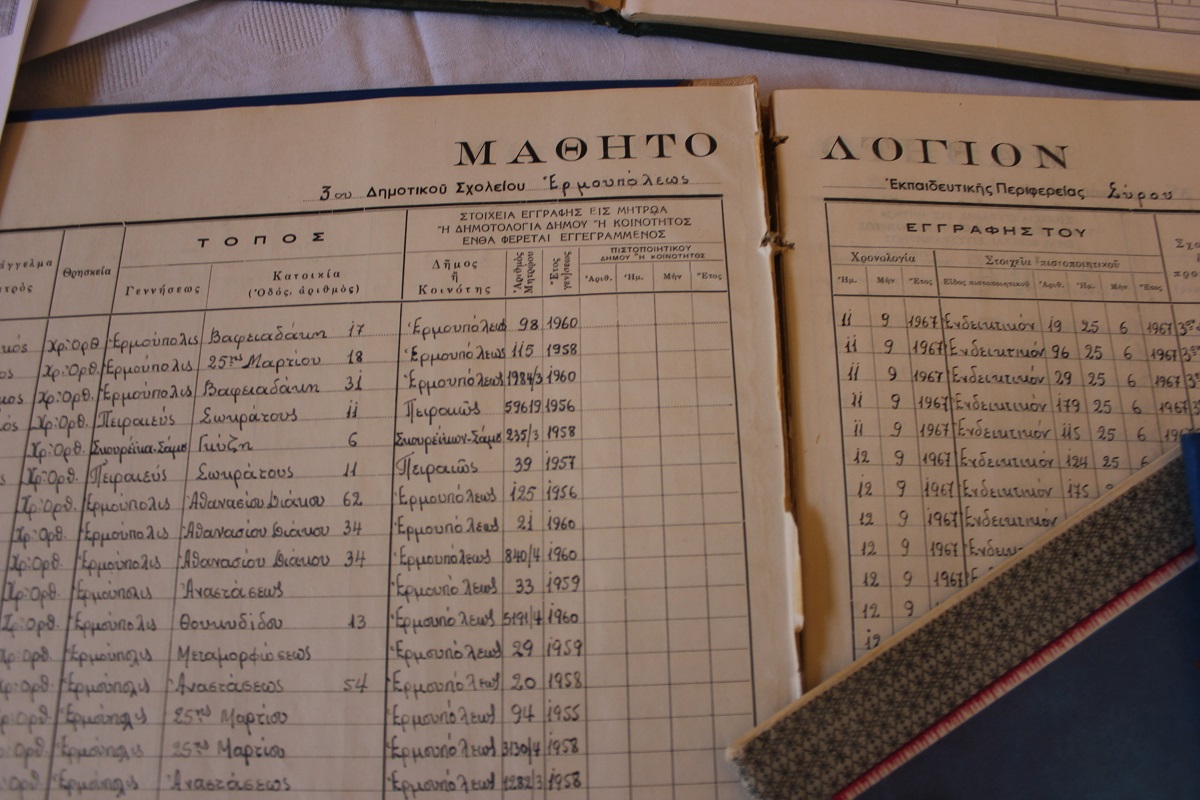 ΜΑΘΗΤΟ ΛΟΓΙΟΝ
3ου Δημοτικοῦ Σχολείου Ἑρμουπόλεως Ἐκπαιδευτικῆς Περιφερείας Σύρου
άγγελμα
τρός
Θρησκεία
ΤΟΠΟΣ
Γεννήσεως
Κατοικία
(Ὁδός, ἀριθμός)
ΣΤΟΙΧΕΙΑ ΕΓΓΡΑΦΗΣ ΕΙΣ ΜΗΤΡΩΑ
Ἢ ΔΗΜΟΤΟΛΟΓΙΑ ΔΗΜΟΥ Ἢ ΚΟΙΝΟΤΗΤΟΣ
ΕΝΘΑ ΦΕΡΕΤΑΙ ΕΓΓΕΓΡΑΜΜΕΝΟΣ
Δῆμος
ἢ
Κοινότης
Ἀριθμὸς
Μητρώου
Ἔτος
ΠΙΣΤΟΠΟΙΗΤΙΚΟΥ
ΔΗΜΟΥ Ἢ ΚΟΙΝΟΤΗΤΟΣ
Ἀριθ. Ἡμ. Μὴν Ἔτος
ΕΓΓΡΑΦΗΣ ΤΟΥ
Χρονολογία Στοιχεῖα πιστοποιητικοῦ
Ἡμ. Μὴν Ἔτος Εἶδος πιστοποιητικοῦ Ἀριθ. Ἡμ. Μὴν Ἔτος
Χρ: Ὀρθ Ἑρμούπολις Βαφειαδάκη 17 Ἑρμουπόλεως 98 1960 11 9 1967 Ἐνδεικτικόν 19 25 6 1967
Χρ: Ὀρθ. Ἑρμούπολις 25ης Μαρτίου 18 Ἑρμουπόλεως 115 1958 11 9 1967 Ἐνδεικτικόν 96 25 6 1967
Χρ: Ὀρθ. Ἑρμούπολις Βαφειαδάκη 31 Ἑρμουπόλεως 1984/3 1960 11 9 1967 Ἐνδεικτικόν 29 25 6 1967
Χρ: Ὀρθ. Πειραιεύς Σωκράτους 11 Πειραιῶς 59619 1956 11 9 1967 Ἐνδεικτικόν 179 25 6 1967
Χρ: Ὀρθ. Σκουρέϊκα-Σάμου Γκύζη 6 Σκουρεΐκων-Σάμου 235/3 1958 11 9 1967 Ἐνδεικτικόν 115 25 6
Χρ: Ὀρθ. Πειραιεύς Σωκράτους 11 Πειραιῶς 39 1957 12 9 1967 Ἐνδεικτικόν 124 25 6
Χρ: Ὀρθ. Ἑρμούπολις Ἀθανασίου Διάκου 62 Ἑρμουπόλεως 125 1956 12 9 1967 Ἐνδεικτικόν 175
Χρ: Ὀρθ. Ἑρμούπολις Ἀθανασίου Διάκου 34 Ἑρμουπόλεως 21 1960 12 9 1967 Ἐνδεικτικόν
Χρ: Ὀρθ. Ἑρμούπολις Ἀθανασίου Διάκου 34 Ἑρμουπόλεως 840/4 1960 12 9 1967
Χρ: Ὀρθ. Ἑρμούπολις Ἀναστάσεως Ἑρμουπόλεως 33 1959 12 9 1967
Χρ: Ὀρθ. Ἑρμούπολις Θουκυδίδου 13 Ἑρμουπόλεως 5191/4 1960 12 9
Χρ: Ὀρθ. Ἑρμούπολις Μεταμορφώσεως Ἑρμουπόλεως 29 1959 12
Χρ: Ὀρθ. Ἑρμούπολις Ἀναστάσεως 54 Ἑρμουπόλεως 20 1958
Ὀρθ. Ἑρμούπολις 25ης Μαρτίου Ἑρμουπόλεως 94 1955
Ὀρθ. Ἑρμούπολις 25ης Μαρτίου Ἑρμουπόλεως 3130/4 1958
Ὀρθ. Ἑρμούπολις Ἀναστάσεως Ἑρμουπόλεως 1282/3 1958